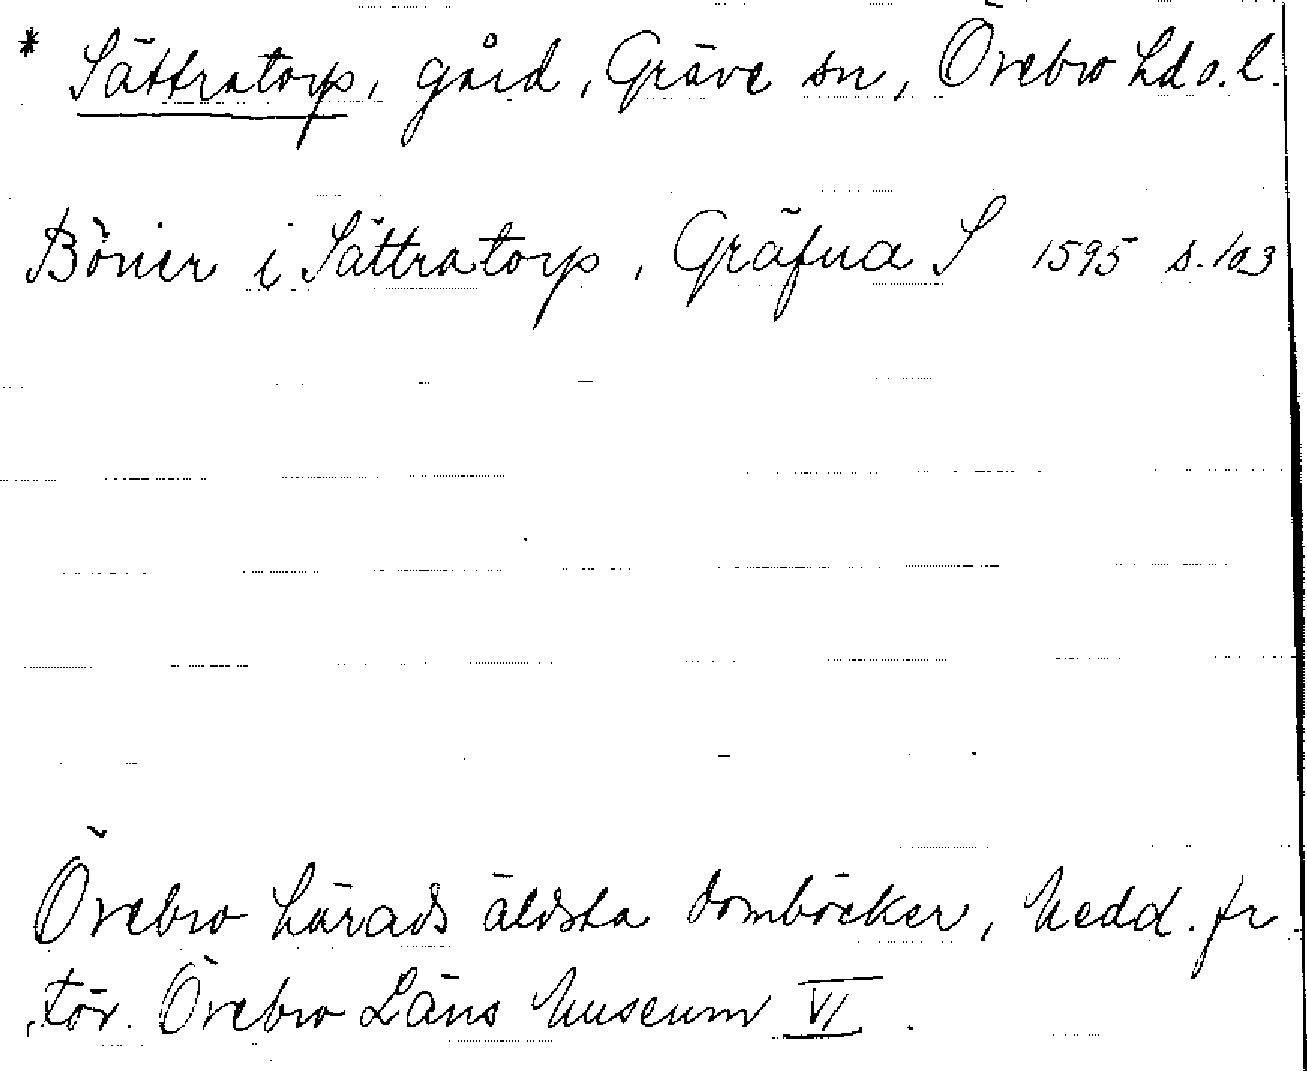 * Sättratorp, gård, Gräve sn, Örebro hd o. l.
Bönir i Sättratorp, Gräfua S 1595 s. 103
Örebro härads äldsta domböcker, Medd. fr
för. Örebro Läns Museum VI.